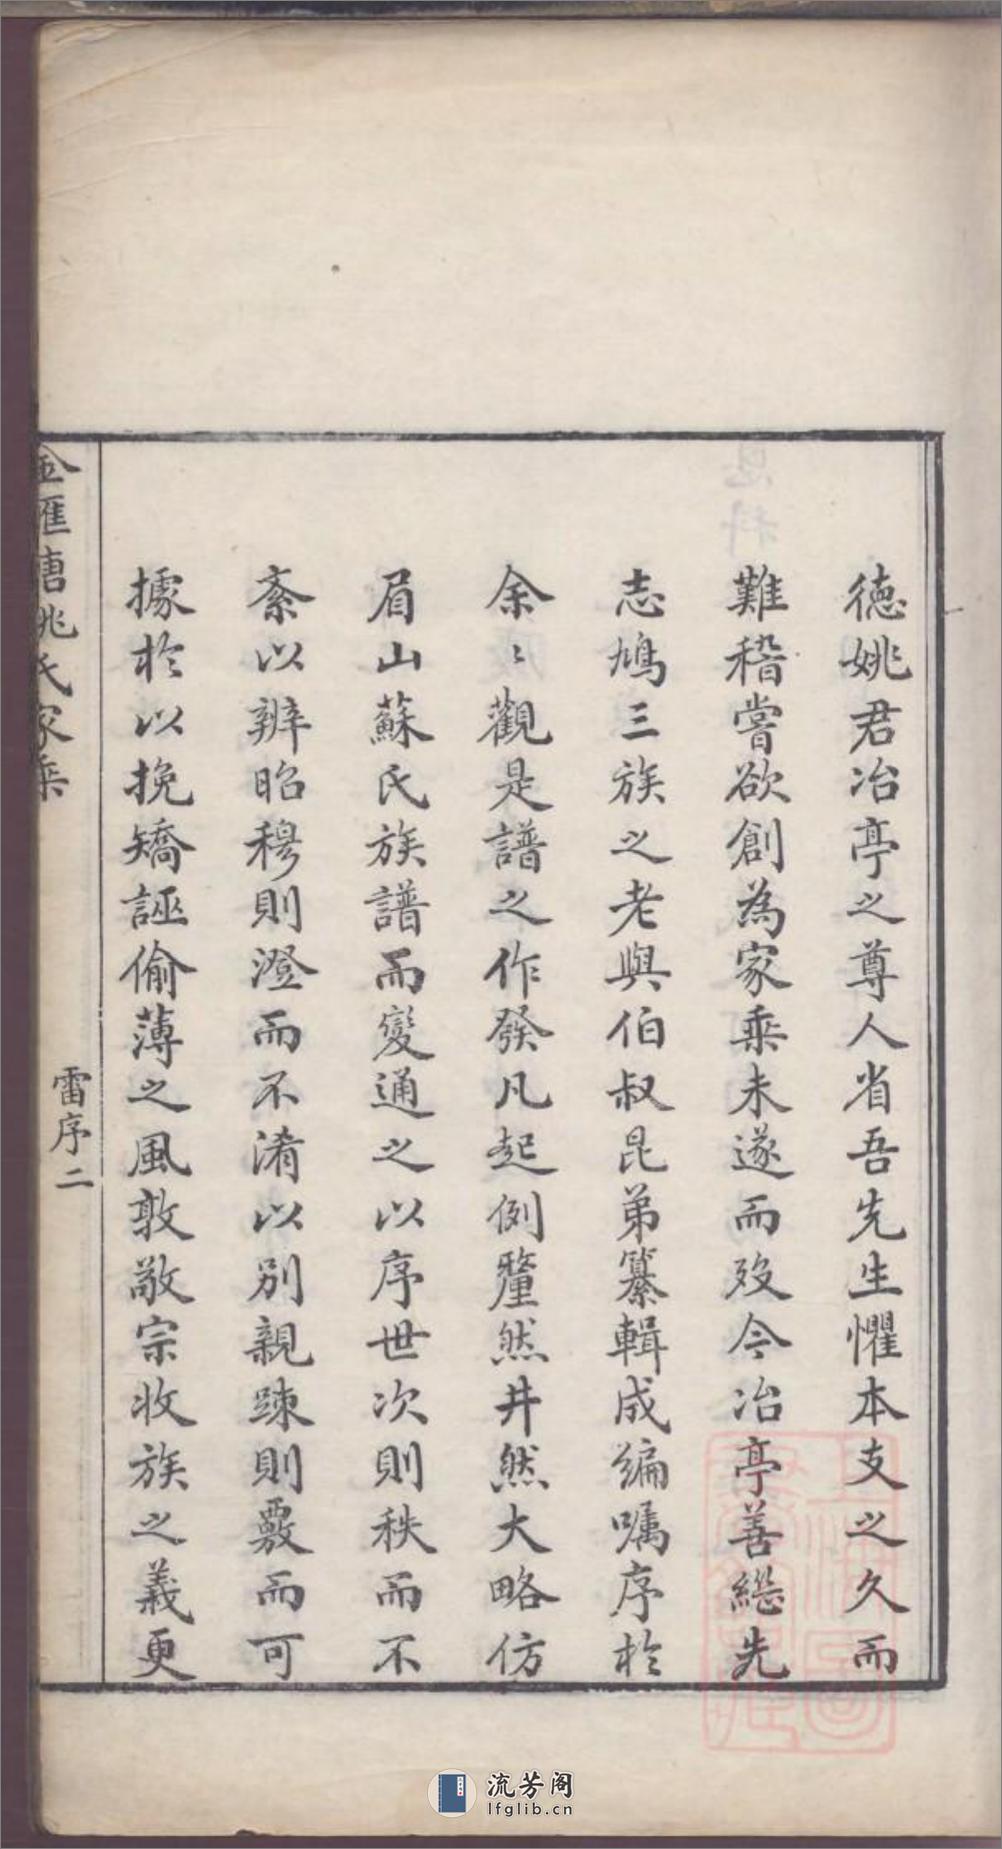 德姚君冶亭之尊人省吾先生懼本支之久而
難稽嘗欲創為家乘未遂而歿今冶亭善繼先
志鳩三族之老與伯叔昆弟纂輯成編嘱序於
余〻觀是譜之作發凡起例釐然井然大略仿
眉山蘇氏族譜而變通之以序世次則秩而不
紊以辨昭穆則澄而不淆以别親踈則覈而可
據於以挽矯誣偷薄之風敦敬宗收族之義更
匯唐姚氏家乘
雷序二
流芳阁
lfglib.cn